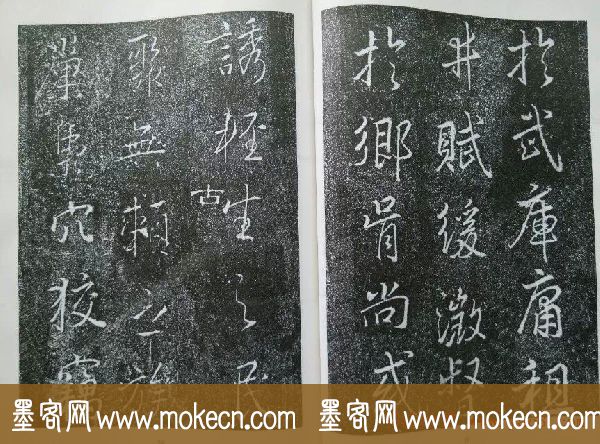 於武庫庸租
井賦緩激督
於鄉胥尚或
誘狂生之民
聚無賴之族
巢窟穴狡
古
墨客网 www.mokecn.com 墨客网 www.mokecn.com